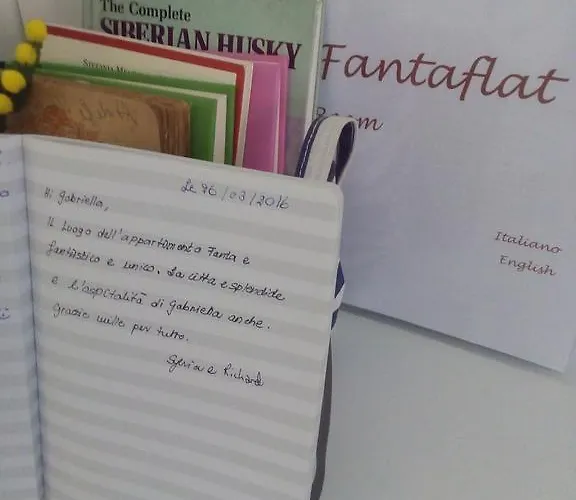 The Complete
SIBERIAN HUSKY
Fantaflat
Room
Italiano
English
Le 26/03/2016
Hi Gabriella,
Il luogo dell'appartamento Fanta e
fantastico e unico. La citta e splendide
e l'aspitalità di Gabriella anche.
Grazie mille per tutto.
Sylvia e Richard